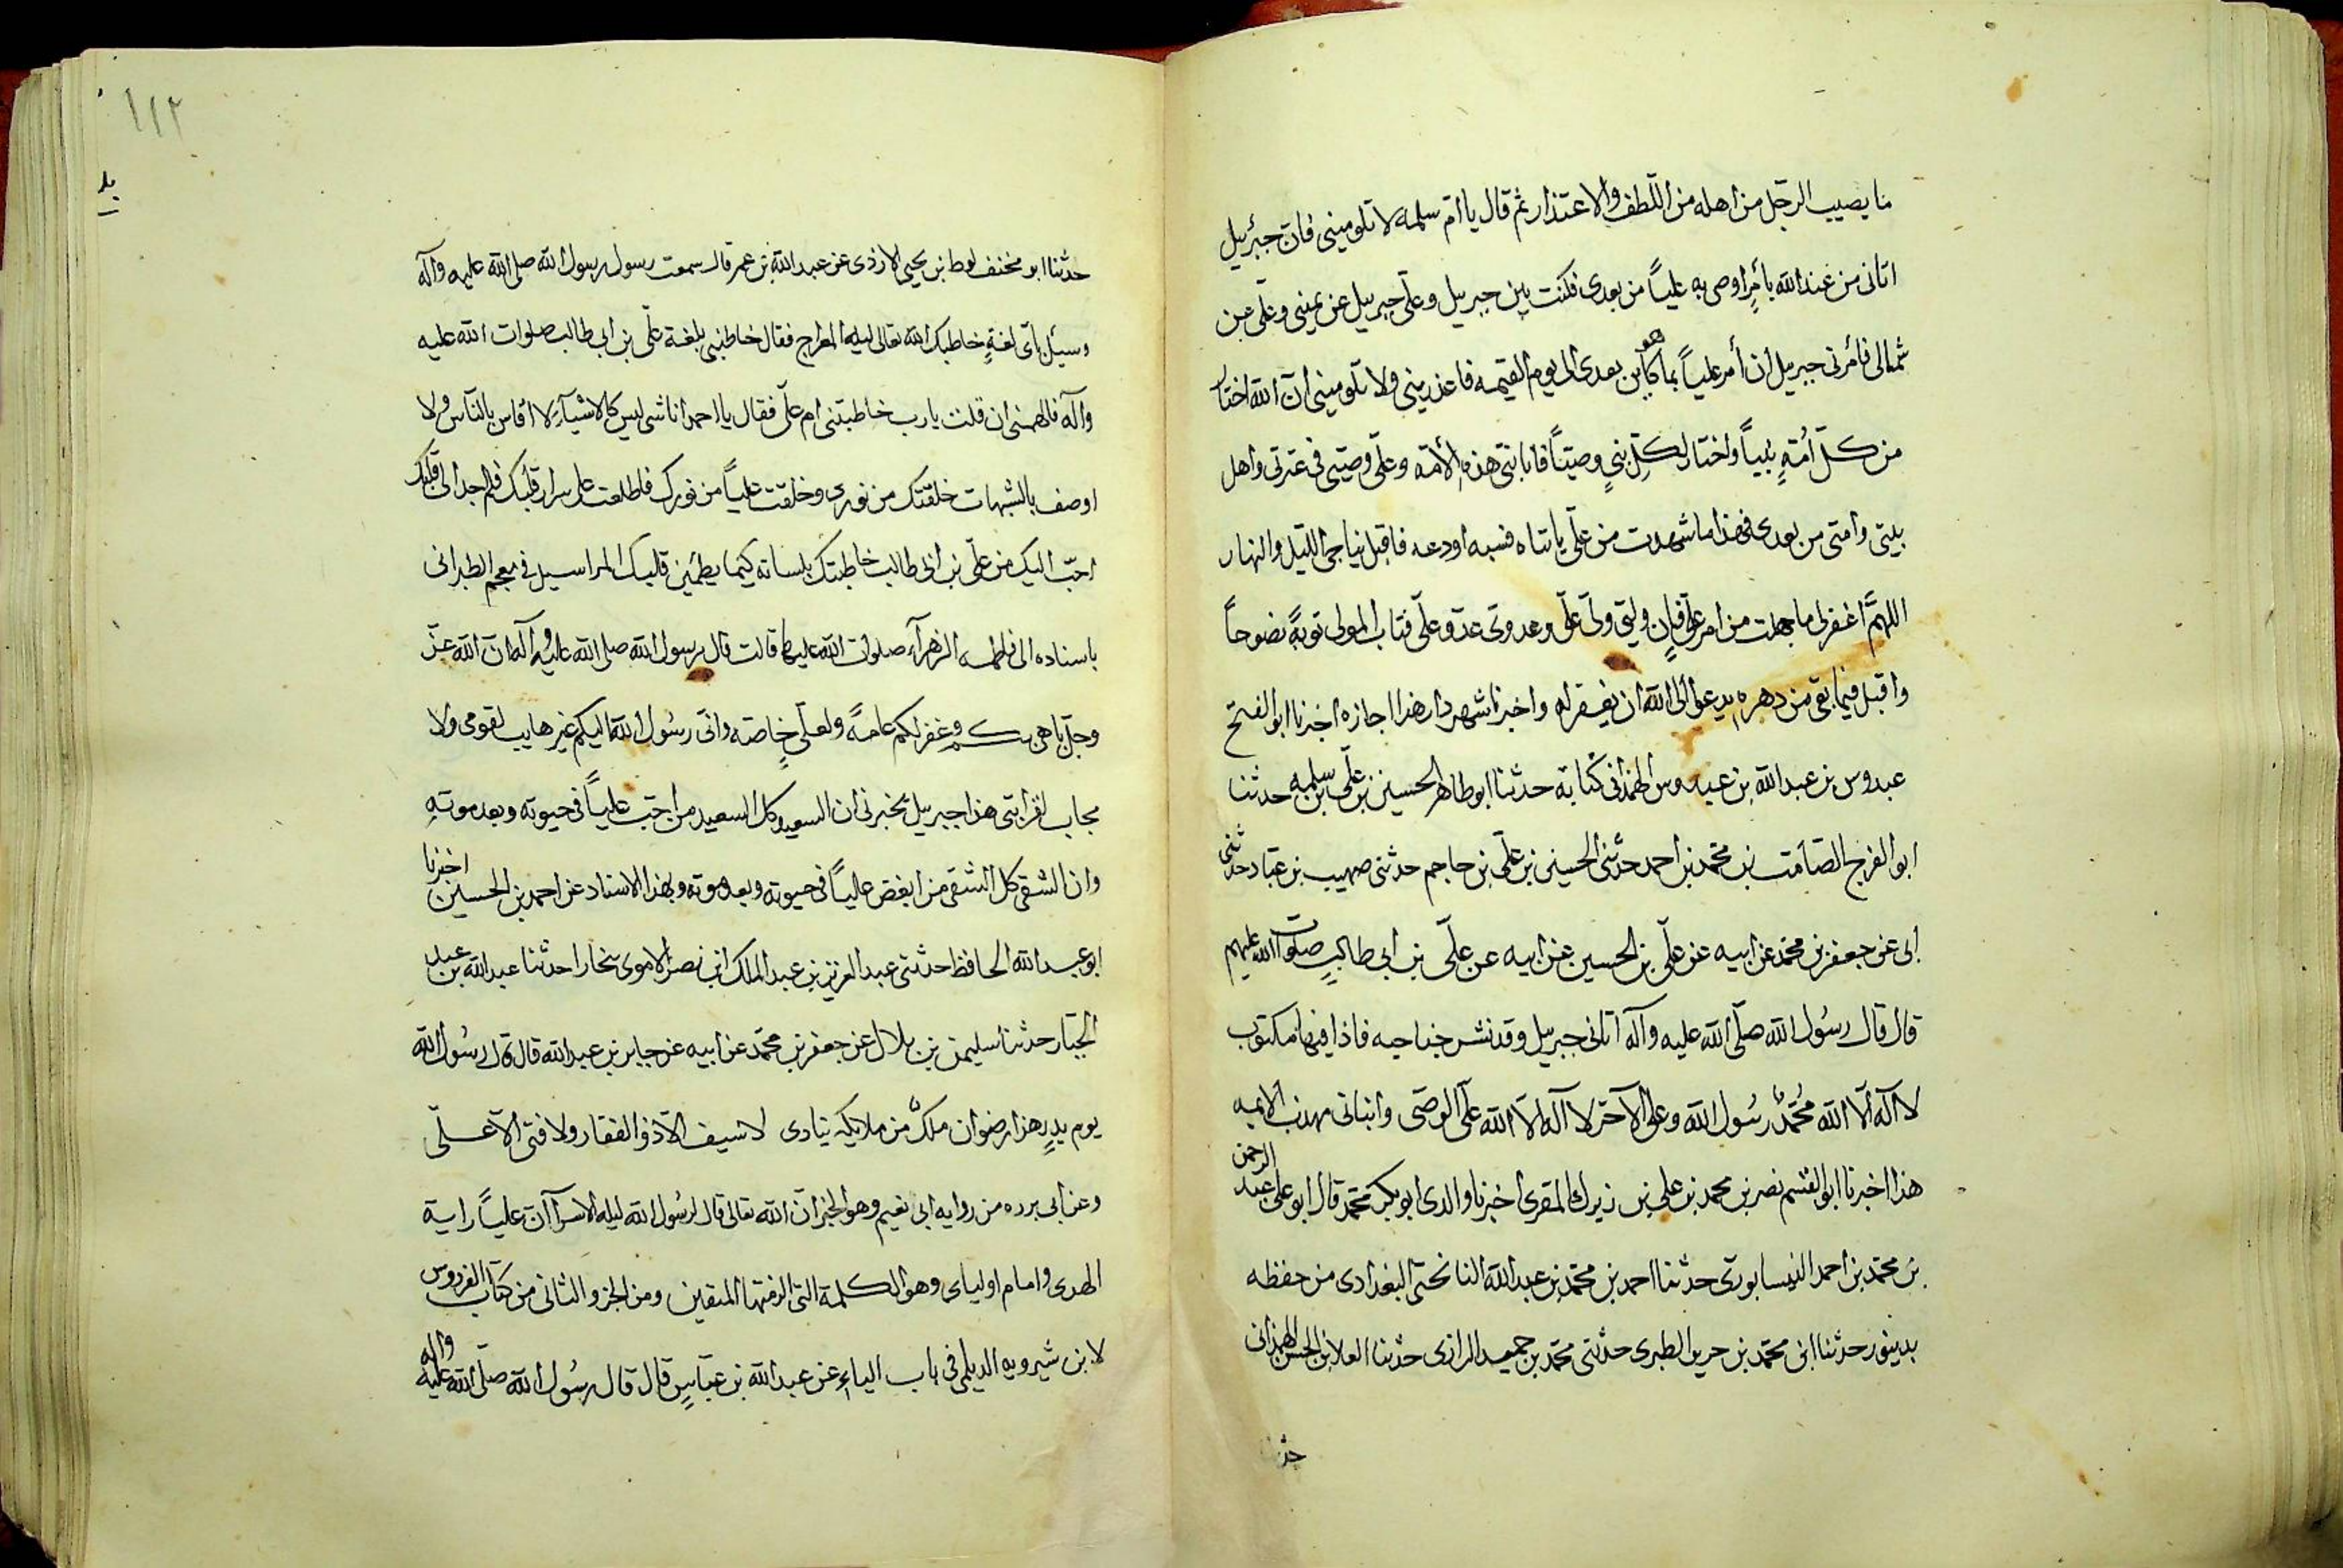 ما يصيب الرجل من اهله من اللطف والاعتذار ثم قال يا ام سلمه لا تلوميني فان جبرئيل
اتاني من عند الله بأمر اوصي به عليّاً من بعدى فكنت بين جبرييل وعلي جبرييل عن يميني وعليّ عن
شمالى فامرني جبرييل ان أمر عليّاً بما هو كاين بعدى الى يوم القيمه فاعذريني ولا تلوميني انّ الله اختار
من كلّ اُمّةٍ نبياً واختار لكلّ نبيٍ وصيّاً فانا نبيّ هذه الأمّه وعليّ وصيّي في عترتى واهل
بيتى وامتى من بعدى فهذا ما شهدت من عليّ يا ابتاه فسبه او دعه فاقبل يناجى الليل والنهار
اللهمّ اغفر لى ما جهلت من امر عليّ فان وليّي وليّ عليّ وعدوّى عدوّ عليّ فتاب المولى توبةً نصوحاً
واقبل فيما بقي من دهره يدعوا الى الله ان يغفر له واخبرنا شهردار هذا اجازه اخبرنا ابو الفتح
عبدوس بن عبد الله بن عبدوس الهمداني كتابة حدثنا ابو طاهر الحسين بن علي بن سلمه حدثنا
ابو الفرج الصامت بن محمّد بن احمد حدّثني الحسين بن عليّ بن حاجم حدثني صهيب بن عبّاد حدثني
ابى عن جعفر بن محمد عن ابيه عن عليّ بن الحسين عن ابيه عن عليّ بن ابي طالبٍ صلوات الله عليهم
قال قال رسُول الله صلّى الله عليه وآله اتانى جبرييل وقد نشر جناحيه فاذا فيها مكتوب
لا آله الّا الله مُحمّدٌ رسُول الله وعلى الآخر لا آله الّا الله عليّ الوصى وانبانى مهذب الايمه
هذا اخبرنا ابو القسم نصر بن محمد بن علي بن زيرك المقرى اخبرنا والدى ابو بكر محمّد قال ابو على عبد الرحمن
بن محمّد بن احمد النيسابورى حدثنا احمد بن محمّد بن عبد الله النانحى البغدادى من حفظه
بدينور حدثنا ابن محمّد بن جرير الطبرى حدثنى محمّد بن حميد الرازى حدثنا العلا بن الحسن الهمداني
حدثنا
١١٢
حدثنا ابو مخنف لوط بن يحيى الازدى عن عبد الله بن عمر قال سمعت رسول رسول الله صلى الله عليه وآله
وسيل باى لغةٍ خاطبك الله تعالى ليله المعراج فقال خاطبنى بلغة عليّ بن ابى طالب صلوات الله عليه
وآله فالهمنى ان قلت يا رب خاطبتنى ام عليّ فقال يا احمد انا شى ليس كالاشيآء لا اقاس بالناس ولا
اوصف بالشبهات خلقتك من نورى وخلقت عليّاً من نورك فاطلعت على سراير قلبك فلم اجد الى قلبك
احبّ اليك من عليّ بن ابى طالب خاطبتك بلسانه كيما يطمئن قلبك المراسيل في معجم الطبرانى
باسناده الى فاطمه الزهرآء صلوات الله عليها قالت قال رسول الله صلى الله عليه وآله ان الله عزّ
وجلّ باهى بكم وغفر لكم عامةً ولعليّ خاصّه وانّى رسُول الله اليكم غير هايب لقومى ولا
مجاب لقرابتى هذا جبرييل يخبرنى ان السعيد كل السعيد من احبّ عليّاً في حيوته وبعد موته
وان الشقى كل الشقى من ابغض عليّاً في حيوته وبعد موته وبهذا الاسناد عن احمد بن الحسين اخبرنا
ابو عبد الله الحافظ حدثنى عبد العزيز بن عبد الملك ابن نصر الاموى بنحارا حدثنا عبد الله بن عبد
الجبّار حدثنا سليمن بن بلال عن جعفر بن محمّد عن ابيه عن جابر بن عبد الله قال قال رسُول الله
يوم بدرٍ هذا رضوان ملكٌ من ملايكه ينادى لا سيف الّا ذو الفقار ولا فتى الّا عليّ
وعن ابى برده من روايه ابى نعيم وهو الخبر انّ الله تعالى قال لرسُول الله ليله الاسرآ انّ عليّاً راية
الهدى وامام اولياى وهو الكلمة التى الزمتها المتقين ومن الجزو الثانى من كتاب الفردوس
لابن شيرويه الديلمى في باب الياءِ عن عبد الله بن عبّاسٍ قال قال رسُول الله صلّى الله عليه وآله